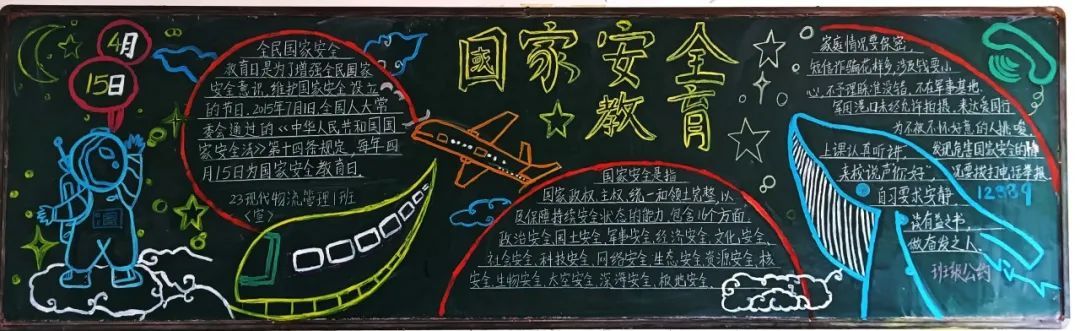 4月
15日
全民国家安全
教育日是为了增强全民国家
安全意识,维护国家安全设立
的节日。2015年7月1日,全国人大常
委会通过的《中华人民共和国国
家安全法》第十四条规定,每年四
月15日为国家安全教育日。
23现代物流管理1班
<宣>
國家安全
教育
国家安全是指
国家政权、主权、统一和领土完整,以
及保障持续安全状态的能力,包含16个方面。
政治安全、国土安全、军事安全、经济安全、文化安全、
社会安全、科技安全、网络安全、生态安全、资源安全、核
安全、生物安全、太空安全、深海安全、极地安全。
家庭情况要保密,
短信诈骗花样多,涉及钱要小
心,不予理睬准没错,不在军事基地、
军用港口未经允许拍摄,表达爱国行
为不被不怀好意的人挑唆,
上课认真听讲,
发现危害国家安全的情
来校说声“你好”,
况要拨打电话举报
自习要求安静,
12339
读有益之书,
做奋发之人。
班级公约